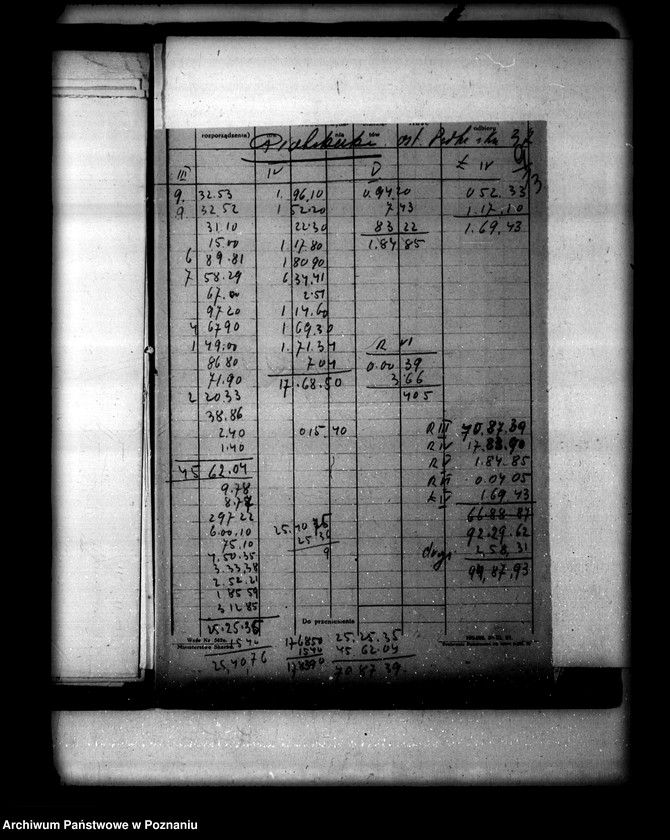 rozporządzenia) nia tów odbioru
III IV V £ IV
9. 32.53 1. 96.10 0.94 20 0 52.33
9. 32.52 1 52.20 7 43 1.17.10
31.10 22.30 83 22 1.69.43
15.00 1 17.80 1.84 85
6 89.81 1 80.90
7 58.29 6 34.41
67.00 2.51
97.20 1 14.60
4 67.90 1 69.30
1 49.00 1.71.34 R VI
86 80 7.04 0.00 39
71.90 17.68.50 3.66
2 20.33 405
38.86
2.40 015.40 R III 70.87.39
1.40 R IV 17.83.90
45 62.04 R V 1.84.85
9.78 R VI 0.04 05
8.74 £ IV 1.69 43
297 22 66 88 87
6.00.10 25.40 75 92.29.62
75.10 25 36
4.50.35 9 drogi 2,58,31
3.33,38 94,87,93
2.52.21
1.85 59
3 12.85
25.25.36 Do przeniesienia
Wzór Nr.
Ministerstwo Skarbu
1540 176850 25.25.35
25,40,76 1540 45 62.04
178390 70 87 39.
Archiwum Państwowe w Poznaniu